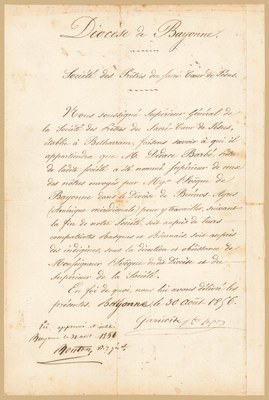 Diocèse de Bayonne.
Société des Prêtres du Sacré Cœur de Jésus.
Nous soussigné Supérieur Général de
la Société des Prêtres du Sacré-Cœur de Jésus,
établie à Betharram, faisons savoir à qui il
appartiendra que M. Didace Barbé, Prêtre
de ladite société a été nommé Supérieur de ceux
des nôtres envoyés par Mgr. l'Evêque de
Bayonne dans le Diocèse de Buénos-Ayres
(Amérique méridionale) pour y travailler, suivant
la fin de notre Société, soit auprès de leurs
compatriotes basques et Béarnais soit auprès
des indigènes, sous la direction et obéissance de
Monseigneur l'Evêque de dit Diocèse et du
Supérieur de la Société.
En foi de quoi, nous lui avons délivré les
présentes. Bayonne, le 30 Août 1856.
Garicoïts
Vu, approuvé et
Bayonne le 31 août 1856